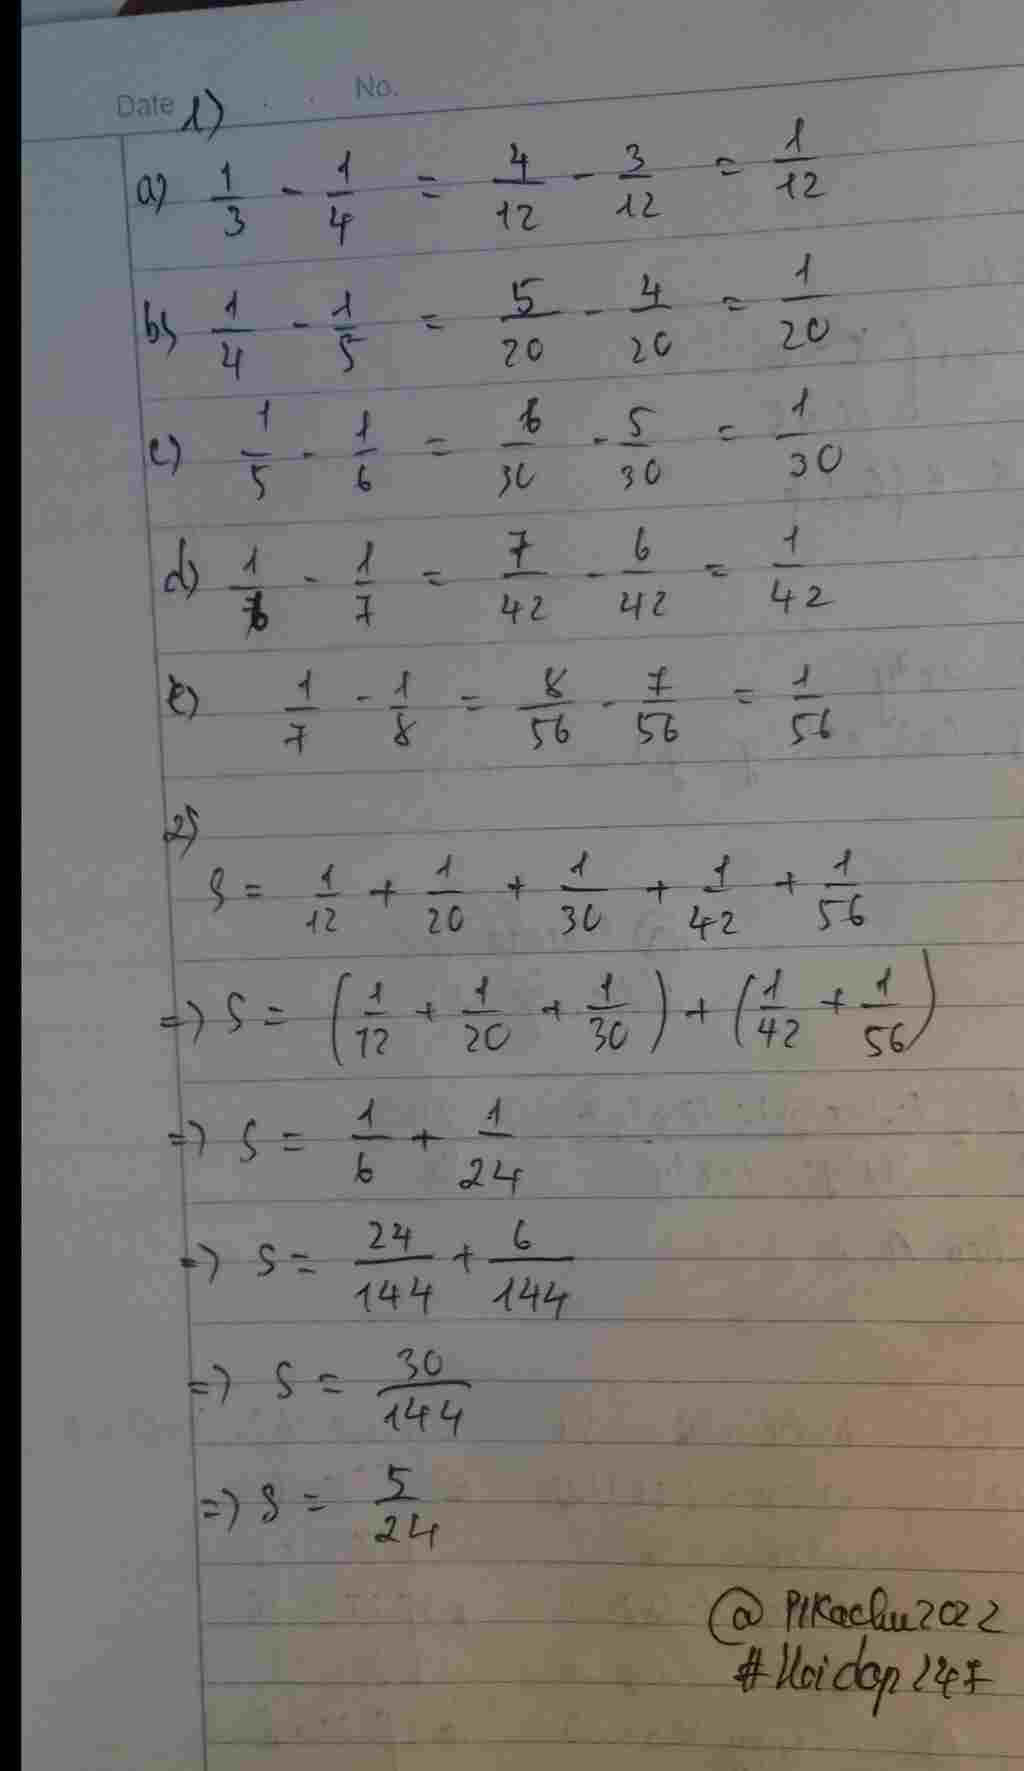 Date No.
1)
a) 1/3 - 1/4 = 4/12 - 3/12 = 1/12
b) 1/4 - 1/5 = 5/20 - 4/20 = 1/20
c) 1/5 - 1/6 = 6/30 - 5/30 = 1/30
d) 1/6 - 1/7 = 7/42 - 6/42 = 1/42
e) 1/7 - 1/8 = 8/56 - 7/56 = 1/56
2)
S = 1/12 + 1/20 + 1/30 + 1/42 + 1/56
=> S = (1/12 + 1/20 + 1/30) + (1/42 + 1/56)
=> S = 1/6 + 1/24
=> S = 24/144 + 6/144
=> S = 30/144
=> S = 5/24
@Pikachu2022
#Hoidap247